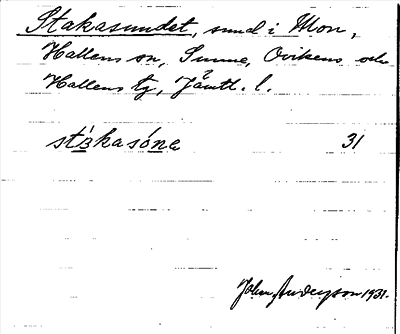 Stakasundet, sund i Mon,
Hallens sn, Sunne, Ovikens och
Hallens tg, Jämtl. l.
31
John Anderson 1931.